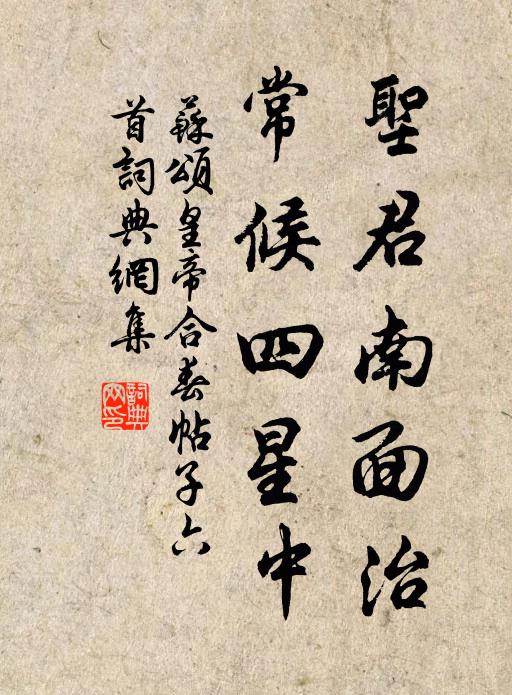 聖君南面治
常候四星中
蘇頌皇帝合春帖子六
首詞典網集
詞典
网印